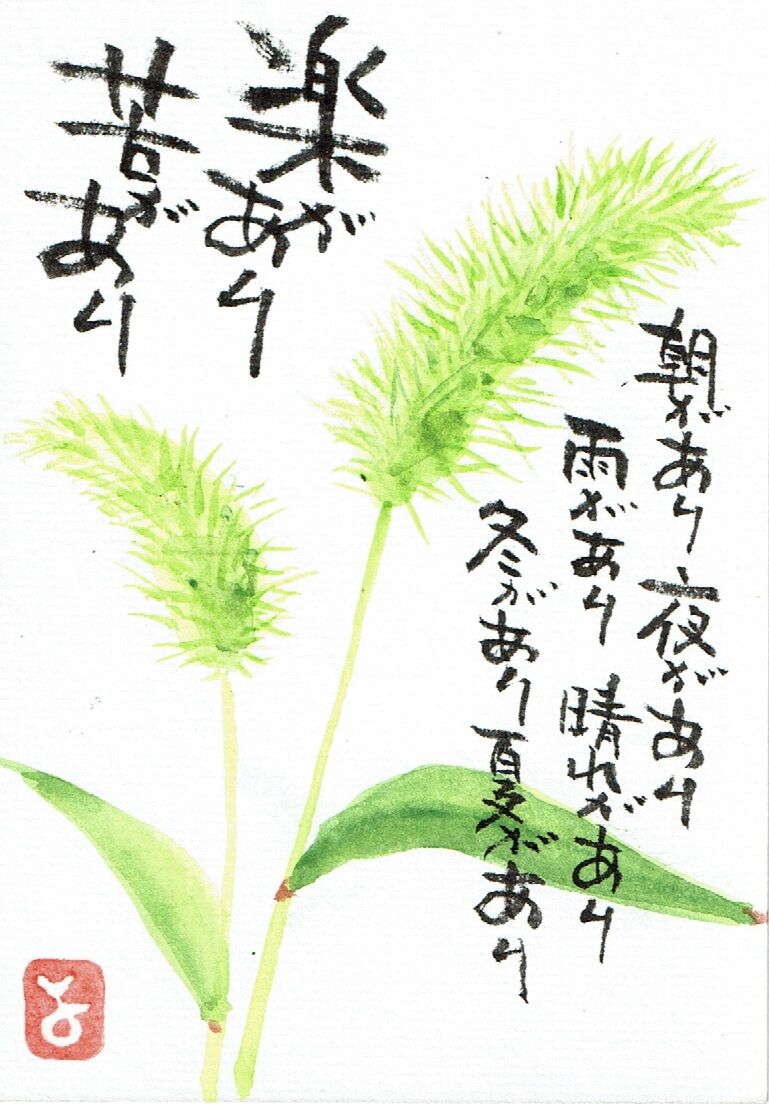 楽があり
苦があり
朝があり 夜があり
雨があり 晴れがあり
冬があり 夏があり